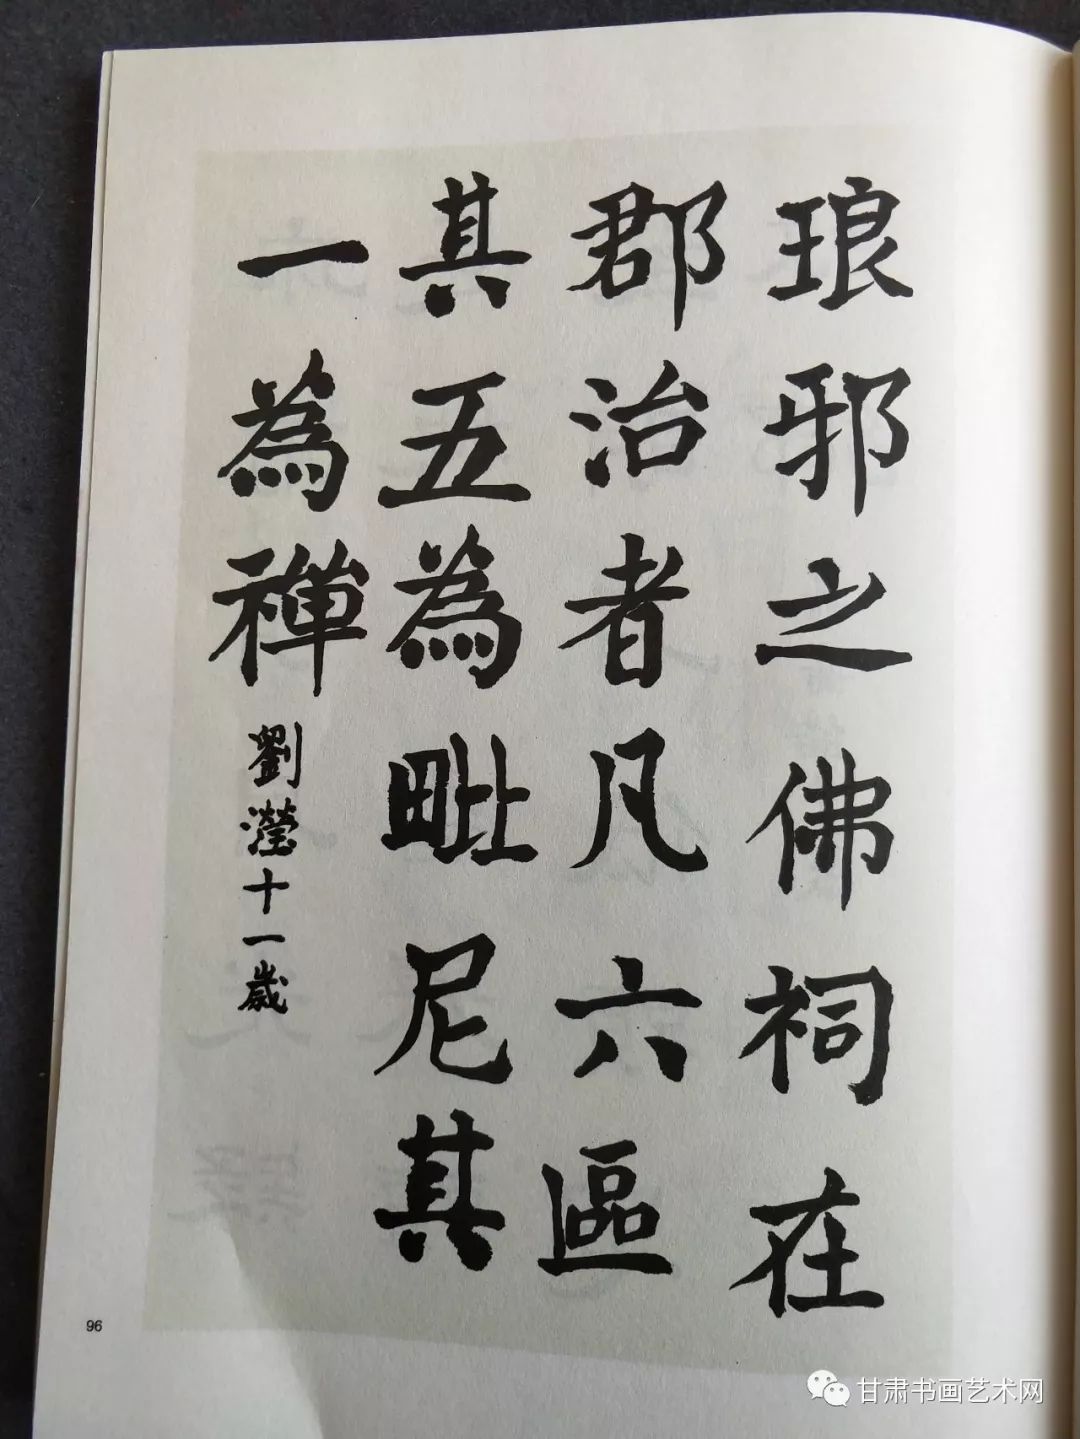 琅邪之佛祠在
郡治者凡六區
其五為毗尼其
一為禪
劉瀅十一歲
96
甘肃书画艺术网